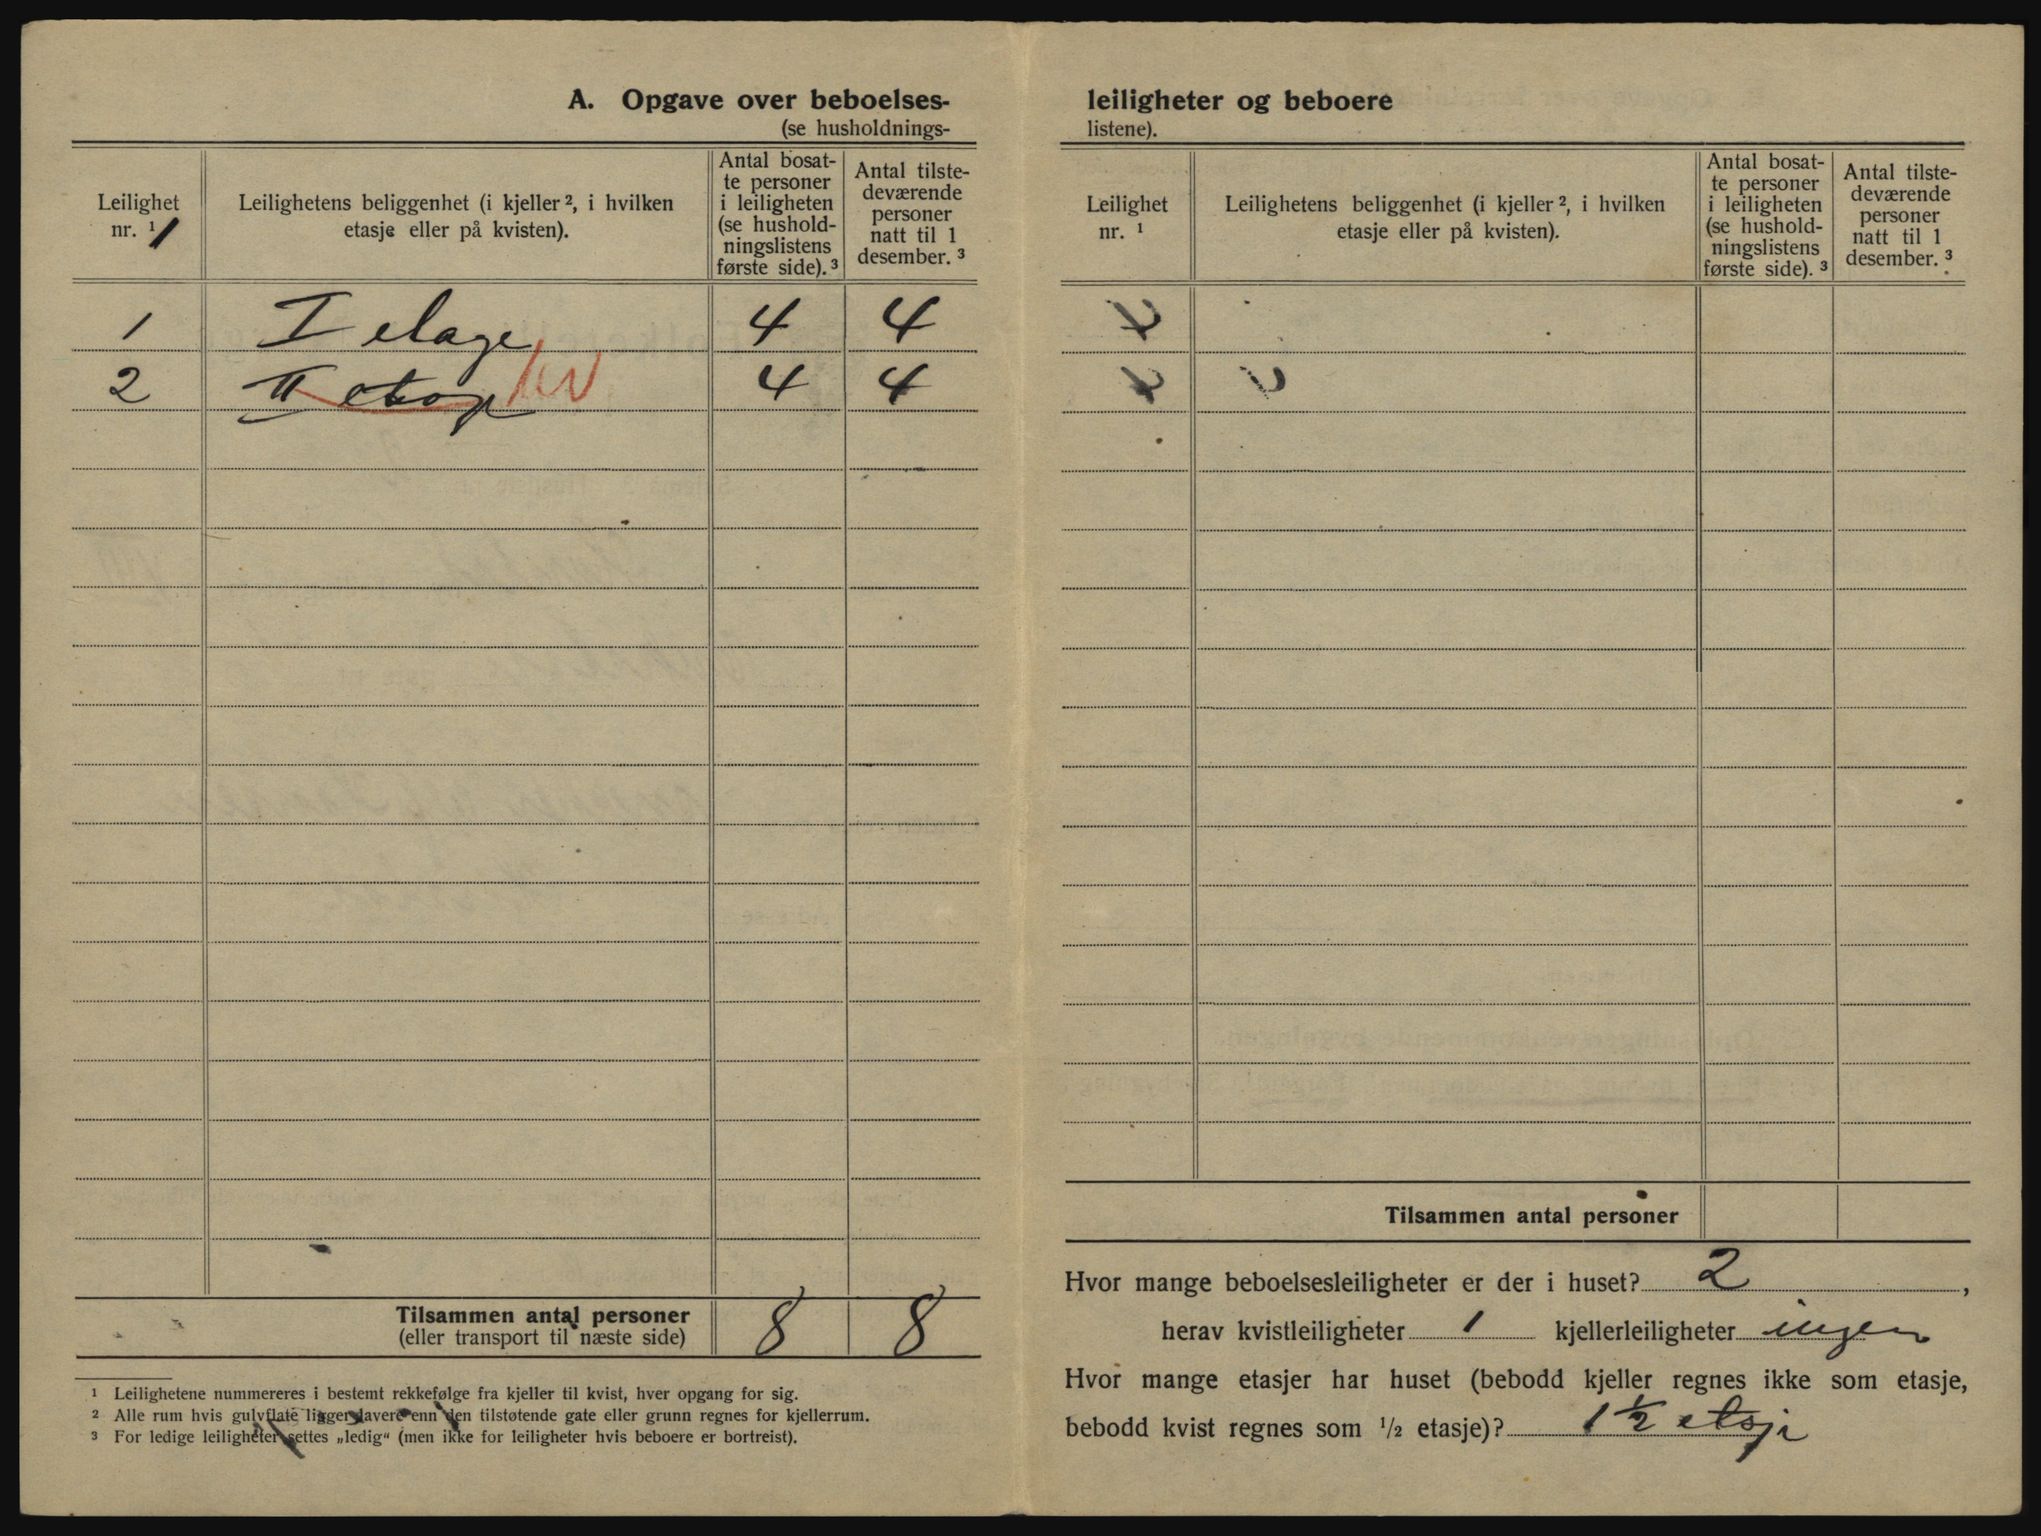 A. Opgave over beboelses-
(se husholdnings-
Leilighet
nr. ¹
Leilighetens beliggenhet (i kjeller ², i hvilken
etasje eller på kvisten).
Antal bosat-
te personer
i leiligheten
(se hushold-
ningslistens
første side). ³
Antal tilste-
deværende
personer
natt til 1
desember. ³
1 I etage 4 4
2 II etasje KV 4 4
Tilsammen antal personer
(eller transport til næste side)
8 8
¹ Leilighetene nummereres i bestemt rekkefølge fra kjeller til kvist, hver opgang for sig.
² Alle rum hvis gulvflate ligger lavere enn den tilstøtende gate eller grunn regnes for kjellerrum.
³ For ledige leiligheter settes „ledig“ (men ikke for leiligheter hvis beboere er bortreist).
leiligheter og beboere
listene).
Leilighet
nr. ¹
Leilighetens beliggenhet (i kjeller ², i hvilken
etasje eller på kvisten).
Antal bosat-
te personer
i leiligheten
(se hushold-
ningslistens
første side). ³
Antal tilste-
deværende
personer
natt til 1
desember. ³
Tilsammen antal personer
Hvor mange beboelsesleiligheter er der i huset? 2 ,
herav kvistleiligheter 1 kjellerleiligheter ingen
Hvor mange etasjer har huset (bebodd kjeller regnes ikke som etasje,
bebodd kvist regnes som ½ etasje)? 1 ½ etasje